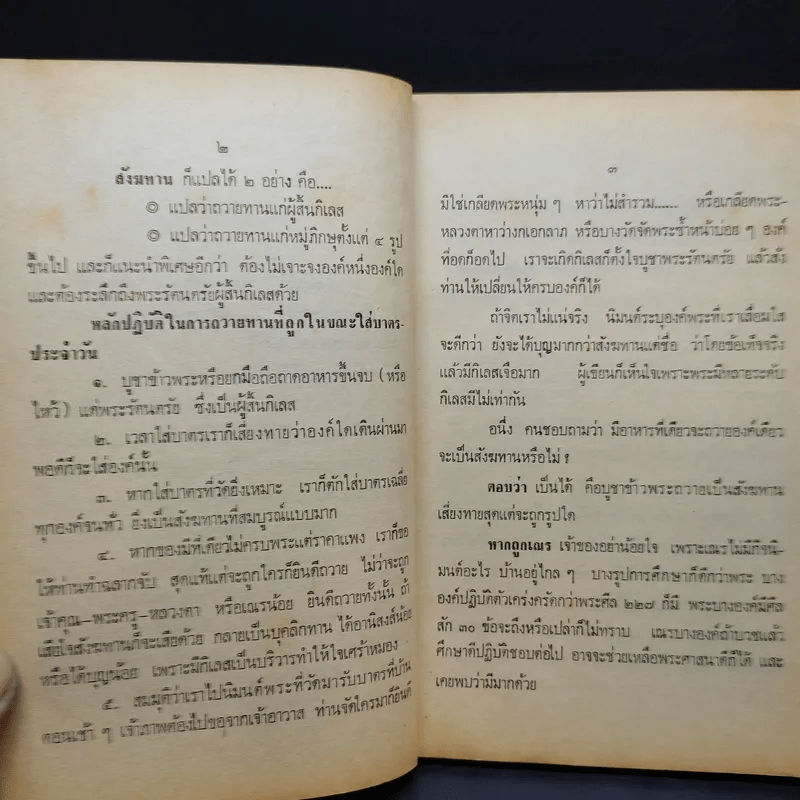 ๒
สังฆทาน ก็แปลได้ ๒ อย่าง คือ....
◎ แปลว่าถวายทานแก่ผู้สิ้นกิเลส
◎ แปลว่าถวายทานแก่หมู่ภิกษุตั้งแต่ ๔ รูป
ขึ้นไป และก็แนะนำพิเศษอีกว่า ต้องไม่เจาะจงองค์หนึ่งองค์ใด
และต้องระลึกถึงพระรัตนตรัยผู้สิ้นกิเลสด้วย
หลักปฏิบัติในการถวายทานที่ถูกในขณะใส่บาตร-
ประจำวัน
๑. บูชาข้าวพระหรือยกมือถือถาดอาหารขึ้นจบ (หรือ
ไหว้) แด่พระรัตนตรัย ซึ่งเป็นผู้สิ้นกิเลส
๒. เวลาใส่บาตรเราก็เสี่ยงทายว่าองค์ใดเดินผ่านมา
พอดีก็จะใส่องค์นั้น
๓. หากใส่บาตรที่วัดยิ่งเหมาะ เราก็ตักใส่บาตรเฉลี่ย
ทุกองค์จนทั่ว ยิ่งเป็นสังฆทานที่สมบูรณ์แบบมาก
๔. หากของมีที่เดียวไม่ครบพระแต่ราคาแพง เราก็ขอ
ให้ท่านทำฉลากจับ สุดแท้แต่จะถูกใครก็ยินดีถวาย ไม่ว่าจะถูก
เจ้าคุณ-พระครู-หลวงตา หรือเณรน้อย ยินดีถวายทั้งนั้น ถ้า
เสียใจสังฆทานก็จะเสียด้วย กลายเป็นบุคลิกทาน ได้อานิสงส์น้อย
หรือได้บุญน้อย เพราะมีกิเลสเป็นบริวารทำให้ใจเศร้าหมอง
๕. สมมุติว่าเราไปนิมนต์พระที่วัดมารับบาตรที่บ้าน
ตอนเช้า ๆ เจ้าภาพต้องไปขอจากเจ้าอาวาส ท่านจัดใครมาก็ยินดี
๓
มิใช่เกลียดพระหนุ่ม ๆ หาว่าไม่สำรวม...... หรือเกลียดพระ-
หลวงตาหาว่างกเอกลาภ หรือบางวัดจัดพระซ้ำหน้าบ่อย ๆ องค์
ที่อดก็อดไป เราจะเกิดกิเลสก็ตั้งใจบูชาพระรัตนตรัย แล้วสั่ง
ท่านให้เปลี่ยนให้ครบองค์ก็ได้
ถ้าจิตเราไม่แน่จริง นิมนต์ระบุองค์พระที่เราเลื่อมใส
จะดีกว่า ยังจะได้บุญมากกว่าสังฆทานแต่ชื่อ ว่าโดยข้อเท็จจริง
แล้วมีกิเลสเจือมาก ผู้เขียนก็เห็นใจเพราะพระมีหลายระดับ
กิเลสมีไม่เท่ากัน
อนึ่ง คนชอบถามว่า มีอาหารที่เดียวจะถวายองค์เดียว
จะเป็นสังฆทานหรือไม่ ?
ตอบว่า เป็นได้ คือบูชาข้าวพระถวายเป็นสังฆทาน
เสี่ยงทายสุดแต่จะถูกรูปใด
หากถูกเณร เจ้าของอย่าน้อยใจ เพราะเณรไม่มีกิจนิ-
มนต์อะไร บ้านอยู่ไกล ๆ บางรูปการศึกษาก็ดีกว่าพระ บาง
องค์ปฏิบัติตัวเคร่งครัดกว่าพระศีล ๒๒๗ ก็มี พระบางองค์มีศีล
สัก ๓๐ ข้อจะถึงหรือเปล่าก็ไม่ทราบ เณรบางองค์ถ้าบวชแล้ว
ศึกษาดีปฏิบัติชอบต่อไป อาจจะช่วยเหลือพระศาสนาดีก็ได้ และ
เคยพบว่ามีมากด้วย